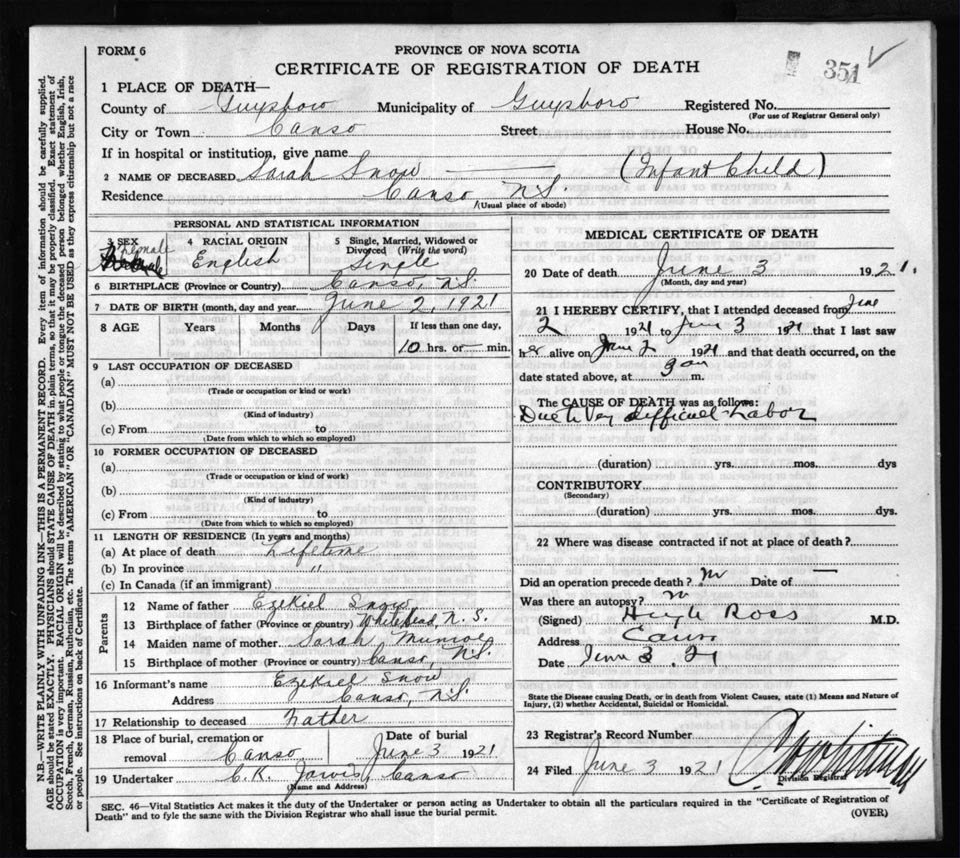 FORM 6
PROVINCE OF NOVA SCOTIA
CERTIFICATE OF REGISTRATION OF DEATH
351
1 PLACE OF DEATH—
County of Guysboro Municipality of Guysboro Registered No.
(For use of Registrar General only)
City or Town Canso Street House No.
If in hospital or institution, give name
2 NAME OF DECEASED Sarah Snow (Infant Child)
Residence Canso N.S.
(Usual place of abode)
PERSONAL AND STATISTICAL INFORMATION
3 SEX Female
4 RACIAL ORIGIN English
5 Single, Married, Widowed or Divorced (Write the word) Single
6 BIRTHPLACE (Province or Country) Canso, N.S.
7 DATE OF BIRTH (month, day and year) June 2, 1921
8 AGE Years Months Days If less than one day,
10 hrs. or — min.
9 LAST OCCUPATION OF DECEASED
(a)
(Trade or occupation or kind or work)
(b)
(Kind of industry)
(c) From to
(Date from which to which so employed)
10 FORMER OCCUPATION OF DECEASED
(a)
(Trade or occupation or kind of work)
(b)
(Kind of industry)
(c) From to
(Date from which to which so employed)
11 LENGTH OF RESIDENCE (In years and months)
(a) At place of death Lifetime
(b) In province "
(c) In Canada (if an immigrant)
Parents
12 Name of father Ezekiel Snow
13 Birthplace of father (Province or country) Whitehead, N.S.
14 Maiden name of mother Sarah Munroe
15 Birthplace of mother (Province or country) Canso, N.S.
16 Informant's name Ezekiel Snow
Address Canso, N.S.
17 Relationship to deceased Father
18 Place of burial, cremation or removal Canso Date of burial June 3 1921
19 Undertaker C. K. Jarvis, Canso
(Name and Address)
MEDICAL CERTIFICATE OF DEATH
20 Date of death June 3 1921.
(Month, day and year)
21 I HEREBY CERTIFY, that I attended deceased from June
2 1921 to June 3 1921 that I last saw
her alive on June 2 1921 and that death occurred, on the
date stated above, at 9 a m.
The CAUSE OF DEATH was as follows:
Due to Very difficult Labor
(duration) yrs. mos. dys
CONTRIBUTORY
(Secondary)
(duration) yrs. mos. dys
22 Where was disease contracted if not at place of death?
Did an operation precede death? no Date of —
Was there an autopsy? no
(Signed) Hugh Ross M.D.
Address Canso
Date June 3. 21
State the Disease causing Death, or in death from Violent Causes, state (1) Means and Nature of
Injury, (2) whether Accidental, Suicidal or Homicidal.
23 Registrar's Record Number
24 Filed June 3 1921
Division Registrar
SEC. 46—Vital Statistics Act makes it the duty of the Undertaker or person acting as Undertaker to obtain all the particulars required in the "Certificate of Registration of
Death" and to fyle the same with the Division Registrar who shall issue the burial permit. (OVER)
N.B.—WRITE PLAINLY WITH UNFADING INK—THIS IS A PERMANENT RECORD. Every item of information should be carefully supplied.
AGE should be stated EXACTLY. PHYSICIANS should STATE CAUSE OF DEATH in plain terms, so that it may be properly classified. Exact statement of
OCCUPATION is very important. RACIAL ORIGIN will be described by stating to what people or tongue the deceased person belonged, whether English, Irish,
Scotch, French, German, Russian, Ruthenian, etc. The terms "AMERICAN" OR "CANADIAN" MUST NOT BE USED as they express citizenship but not a race
or people. See instructions on back of Certificate.